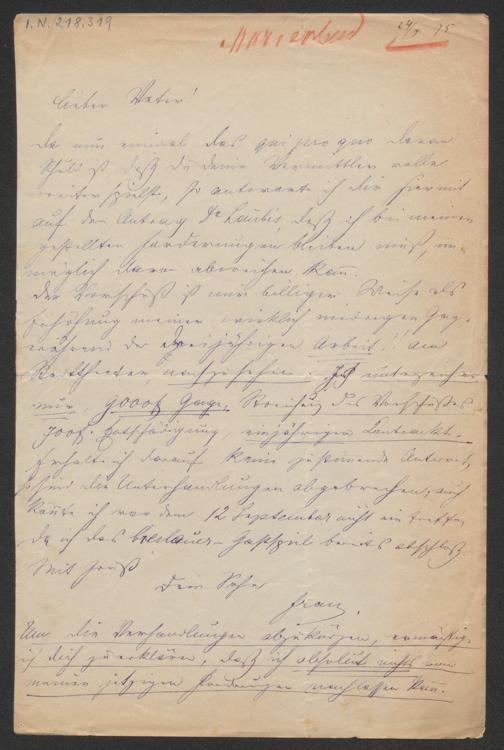 I.N. 218.319
Marienbad 24/7 75
Lieber Vater!
Da nun einmal das qui pro quo daran
Schuld ist, daß du deine Vermittler rolle
weiter spielst, so antworte ich dir hiermit
auf den Antrag Dr Laubes, daß ich bei meinen
gestellten Forderungen bleiben muß, un-
möglich davon abweichen kann.
Der Vorschuß ist nur billiger Weise als
Erhöhung meiner wirklich niedrigen Gage
während der dreijährigen Arbeit!! am
nachzusehen. Ich unterzeichne
nur, Gage, Streichung des Vorschußes
Entschädigung, einjährigen Contrackt.
Erhalte ich darauf keine zustimmende Antwort,
so sind die Unterhandlungen abgebrochen, auch
könnte ich vor dem 12 September nicht eintreffen
da ich das Breslauer Gastspiel bereits abschloß.
Mit Gruß
Dein Sohn
Franz.
Um die Verhandlungen abzukürzen, ermächtige
ich dich zu erklären, daß ich absolut nichts von
meinen jetzigen Forderungen nachlassen kann.